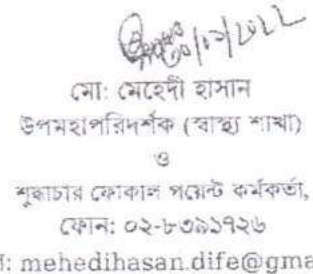 মো: মেহেদী হাসান
উপমহাপরিদর্শক (স্বাস্থ্য শাখা)
ও
শুদ্ধাচার ফোকাল পয়েন্ট কর্মকর্তা,
ফোন: ০২-৮৩৯১৭২৬
: mehedihasan.dife@gma